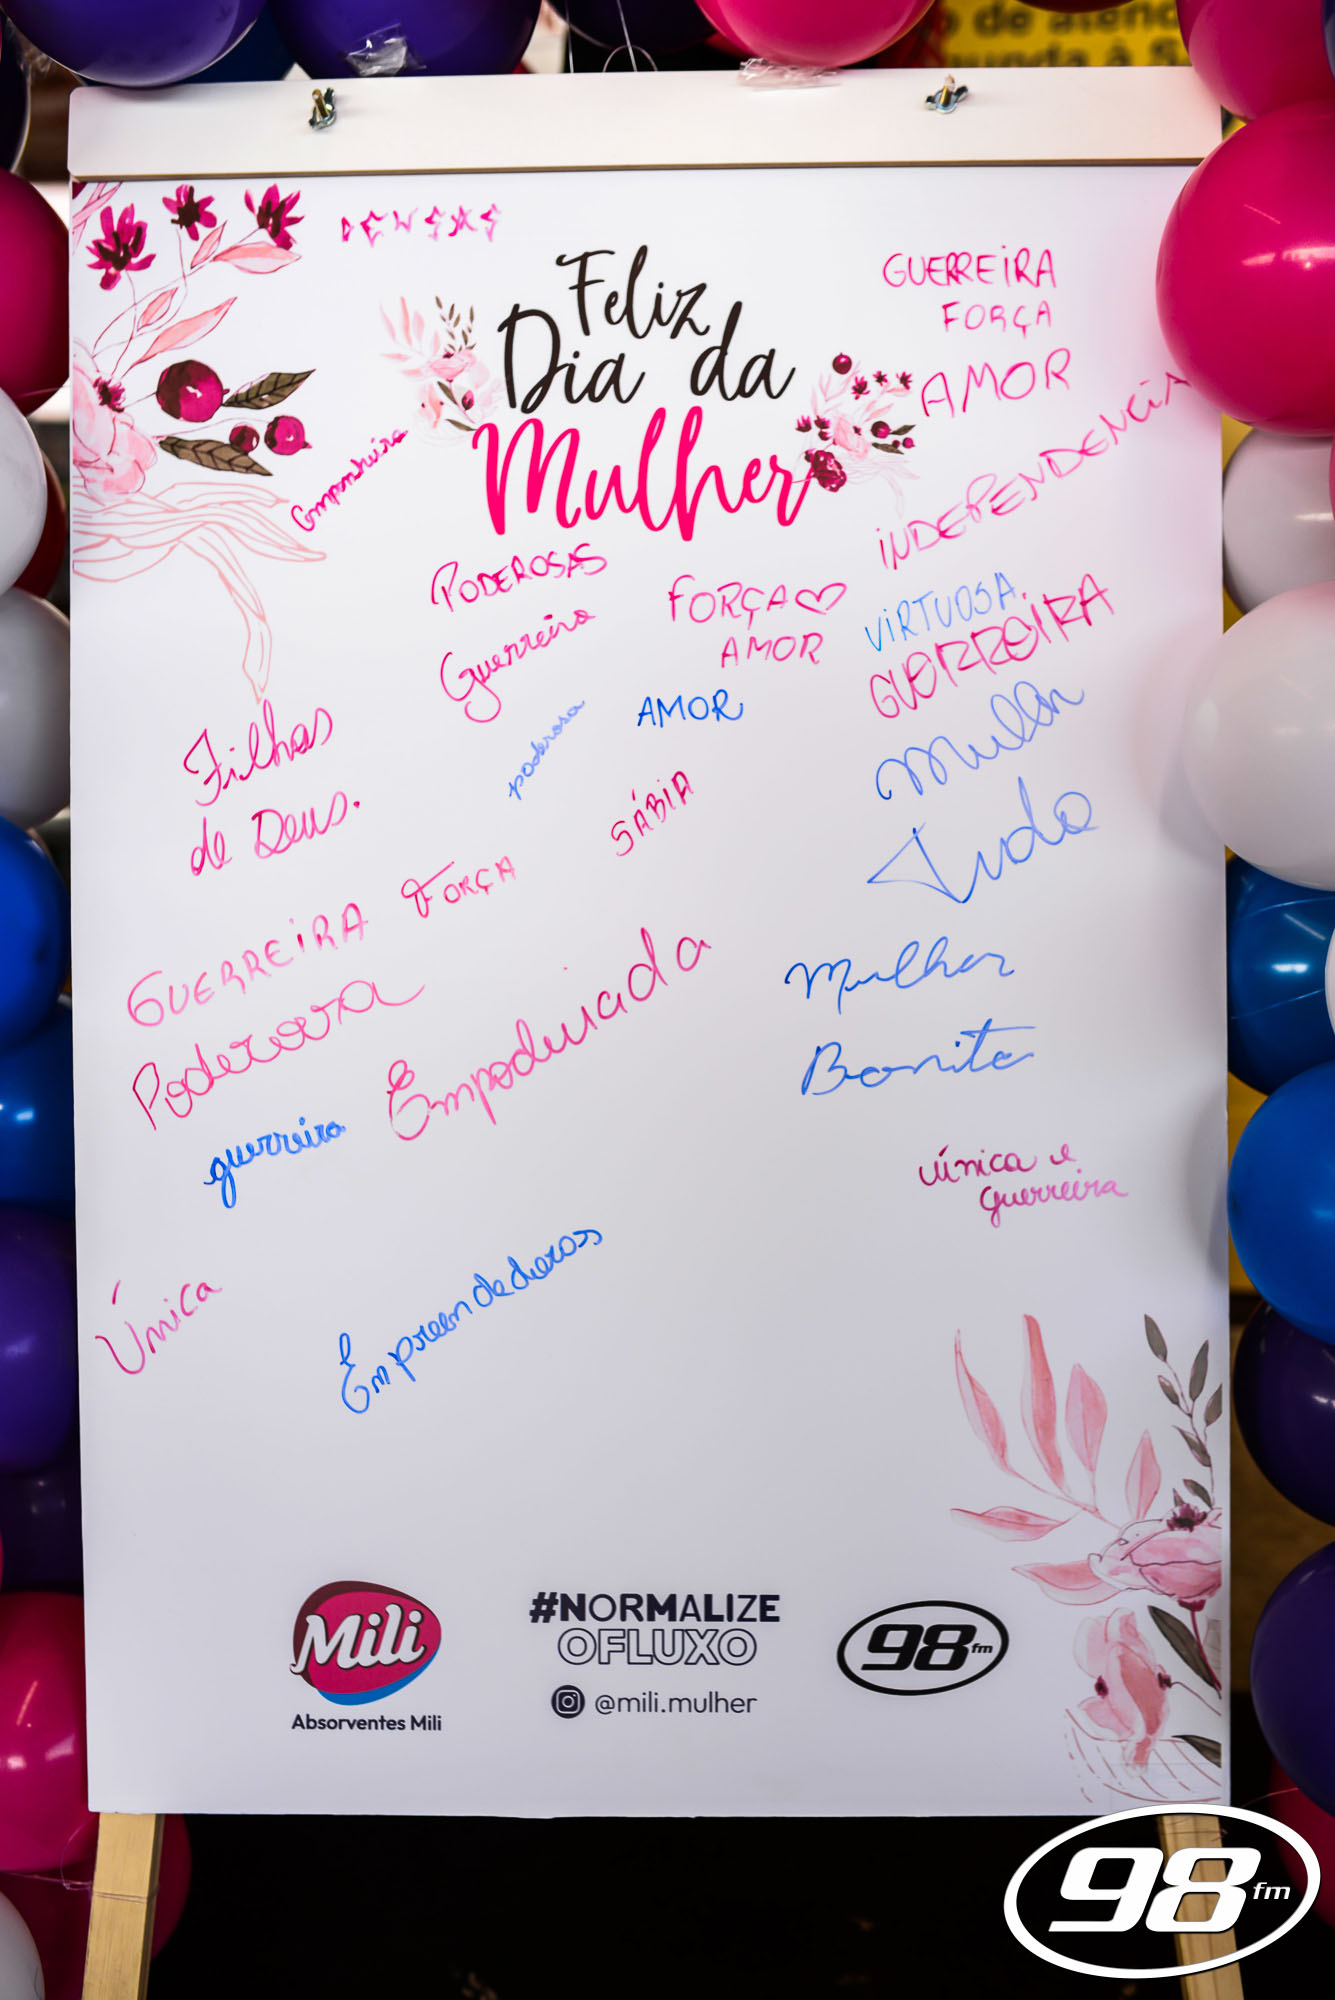 DEUSAS
Feliz
Dia da
Mulher
GUERREIRA
FORÇA
AMOR
INDEPENDENCIA
Companheira
PODEROSAS
Guerreira
FORÇA
AMOR
VIRTUOSA
GUERREIRA
poderosa
AMOR
Filhas
de Deus.
SÁBIA
Tudo
GUERREIRA FORÇA
Poderosa
Empoderada
Mulher
Bonita
guerreira
única e
guerreira
Única
Empreendedoras
Mili
Absorventes Mili
#NORMALIZE
OFLUXO
@mili.mulher
98 fm
98 fm